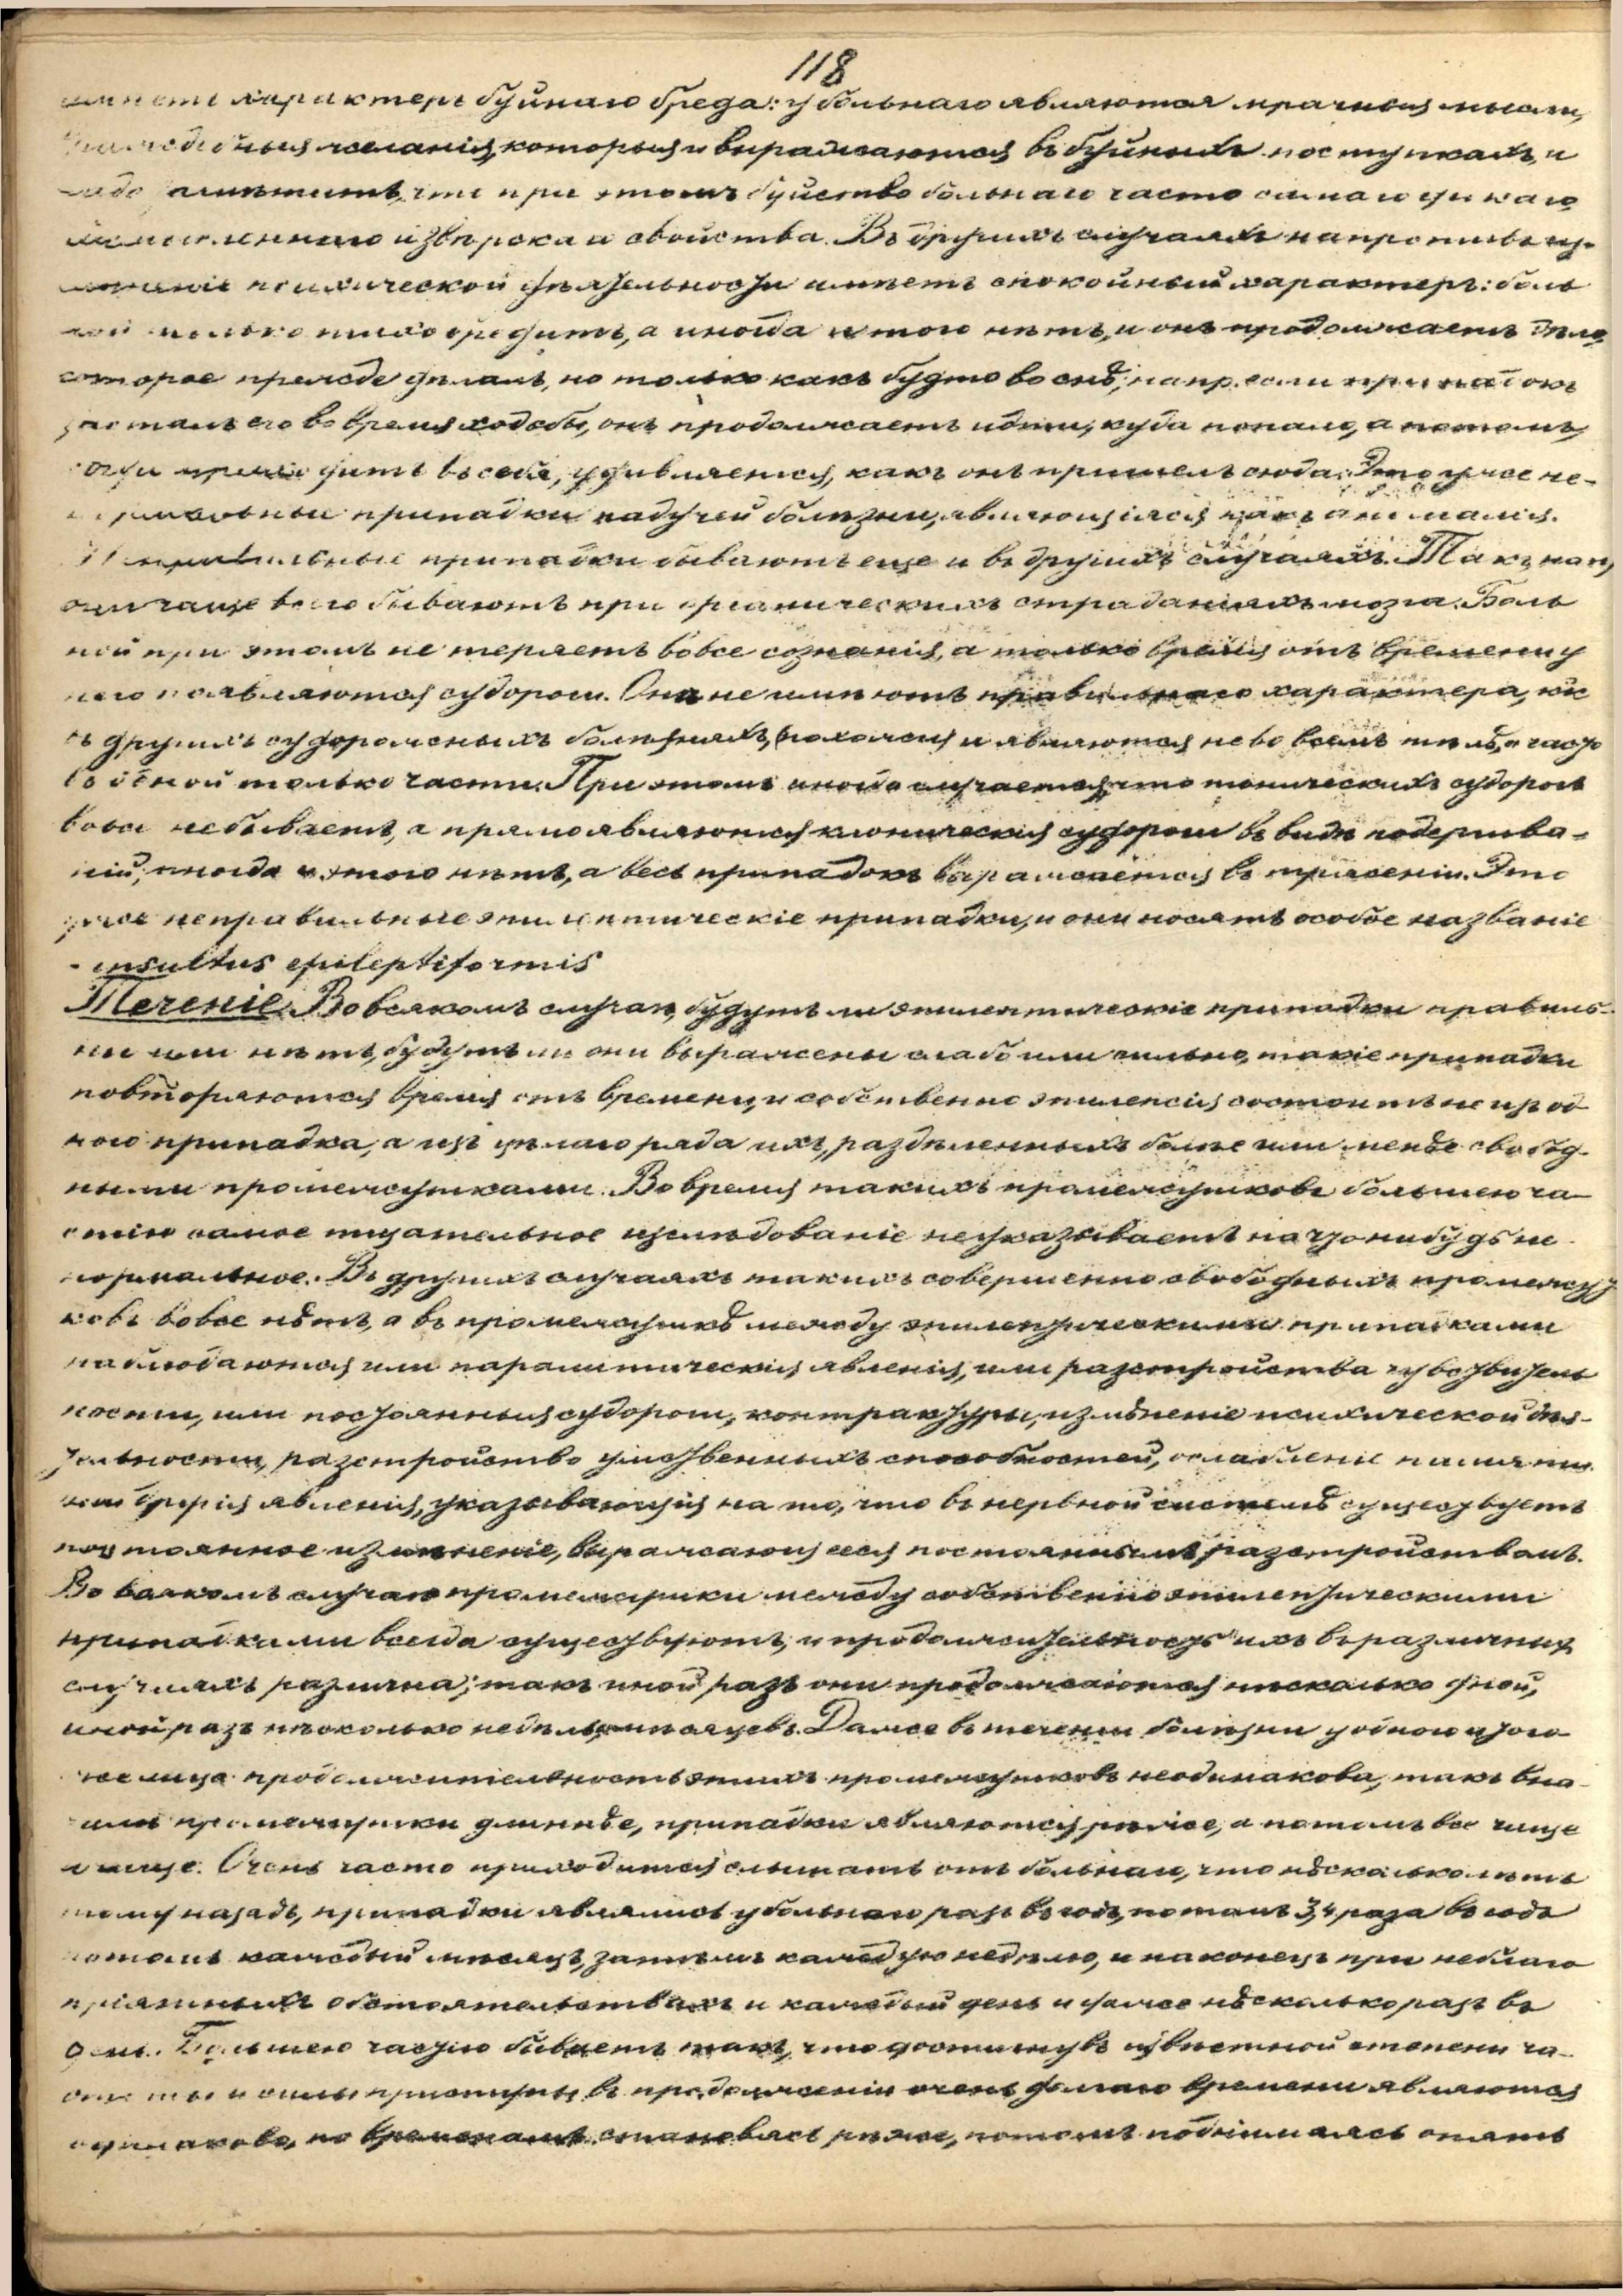 118
имѣетъ характеръ буйнаго бреда: у больнаго являются мрачныя мысли,
желанія, которыя и выражаются въ буйныхъ поступкахъ, и
надо замѣтить, что при этомъ буйство больнаго часто самаго дикаго
и звѣрскаго свойства. Въ другихъ случаяхъ напротивъ из-
мѣненіе психической дѣятельности имѣетъ спокойный характеръ: боль
ной только тихо бредитъ, а иногда и того нѣтъ, и онъ продолжаетъ дѣло,
которое прежде дѣлалъ, но только какъ будто во снѣ; напр. если припадокъ
засталъ его во время ходьбы, онъ продолжаетъ идти, куда попало, а потомъ,
когда приходитъ въ себя, удивляется, какъ онъ пришелъ сюда. Это уже не-
нормальные припадки падучей болѣзни, являющіяся
Неправильные припадки бываютъ еще и въ другихъ случаяхъ. Такъ нап,
они чаще всего бываютъ при органическихъ страданіяхъ мозга. Боль
ной при этомъ не теряетъ вовсе сознанія, а только время отъ времени у
него появляются судороги. Она не имѣютъ правильнаго характера, как
въ другихъ судорожныхъ болѣзняхъ, и являются не во всемъ тѣлѣ, а часто
въ одной только части. При этомъ иногда случается, что тоническихъ судорогъ
вовсе не бываетъ, а прямо являются клоническія судороги въ видѣ подергива-
ній; иногда и этого нѣтъ, а весь припадокъ выражается въ трясеніи. Это
уже неправильные эпилептическіе припадки, и они носятъ особое названіе
- insultus epileptiformis
Теченіе. Во всякомъ случаѣ, будутъ ли эпилептическіе припадки правиль-
ны или нѣтъ, будутъ ли они выражены слабо или сильно, такіе припадки
повторяются время отъ времени, и собственно эпилепсія состоитъ не изъ од
ного припадка, а изъ цѣлаго ряда ихъ, раздѣленныхъ болѣе или менѣе свобод-
ными промежутками. Во время такихъ промежутковъ большею ча-
стію самое тщательное изслѣдованіе не указываетъ на что нибудь не-
нормальное. Въ другихъ случаяхъ такихъ совершенно свободныхъ промежут
ковъ вовсе нѣтъ, а въ промежуткѣ между эпилептическими припадками
наблюдаются или паралитическія явленія, или разстройства чувствитель
ности, или постоянныя судороги, контрактуры, измѣненіе психической дѣя-
тельности, разстройство умственныхъ способностей, ослабленіе памяти
или другія явленія, указывающія на то, что въ нервной системѣ существуетъ
постоянное измѣненіе, выражающееся постояннымъ разстройствомъ.
Во всякомъ случаѣ промежутки между собственно эпилептическими
припадками всегда существуютъ, и продолжительность ихъ въ различныхъ
случаяхъ различна; такъ иной разъ они продолжаются нѣсколько дней,
иной разъ нѣсколько недѣль, мѣсяцевъ. Далѣе въ теченіи болѣзни у одного и того
же лица продолжительность этихъ промежутковъ неодинакова, такъ вна-
чалѣ промежутки длиннѣе, припадки являются рѣже, а потомъ все чаще
и чаще. Очень часто приходится слышать отъ больнаго, что нѣсколько лѣтъ
тому назадъ, припадки являлись у больнаго разъ въ годъ, потомъ 3, 4 раза въ годъ
потомъ каждый мѣсяцъ, затѣмъ каждую недѣлю, и наконецъ при неблаго
пріятныхъ обстоятельствахъ и каждый день и даже нѣсколько разъ въ
день. Большею частію бываетъ такъ, что достигнувъ извѣстной степени ча-
стоты и силы, приступы въ продолженіи очень долгаго времени являются
одинаково, но временамъ становясь рѣже, потомъ поднимаясь опять